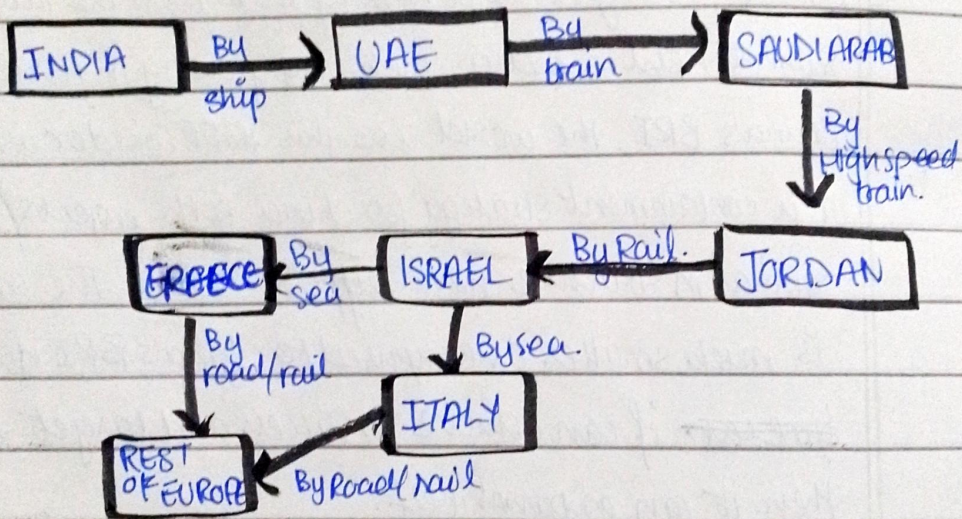 INDIA
By
ship
UAE
By
train
SAUDI ARAB
By
Highspeed
train.
JORDAN
By Rail.
ISRAEL
By
sea
GREECE
By
road/rail
By sea.
ITALY
By Road/rail
REST
OF EUROPE